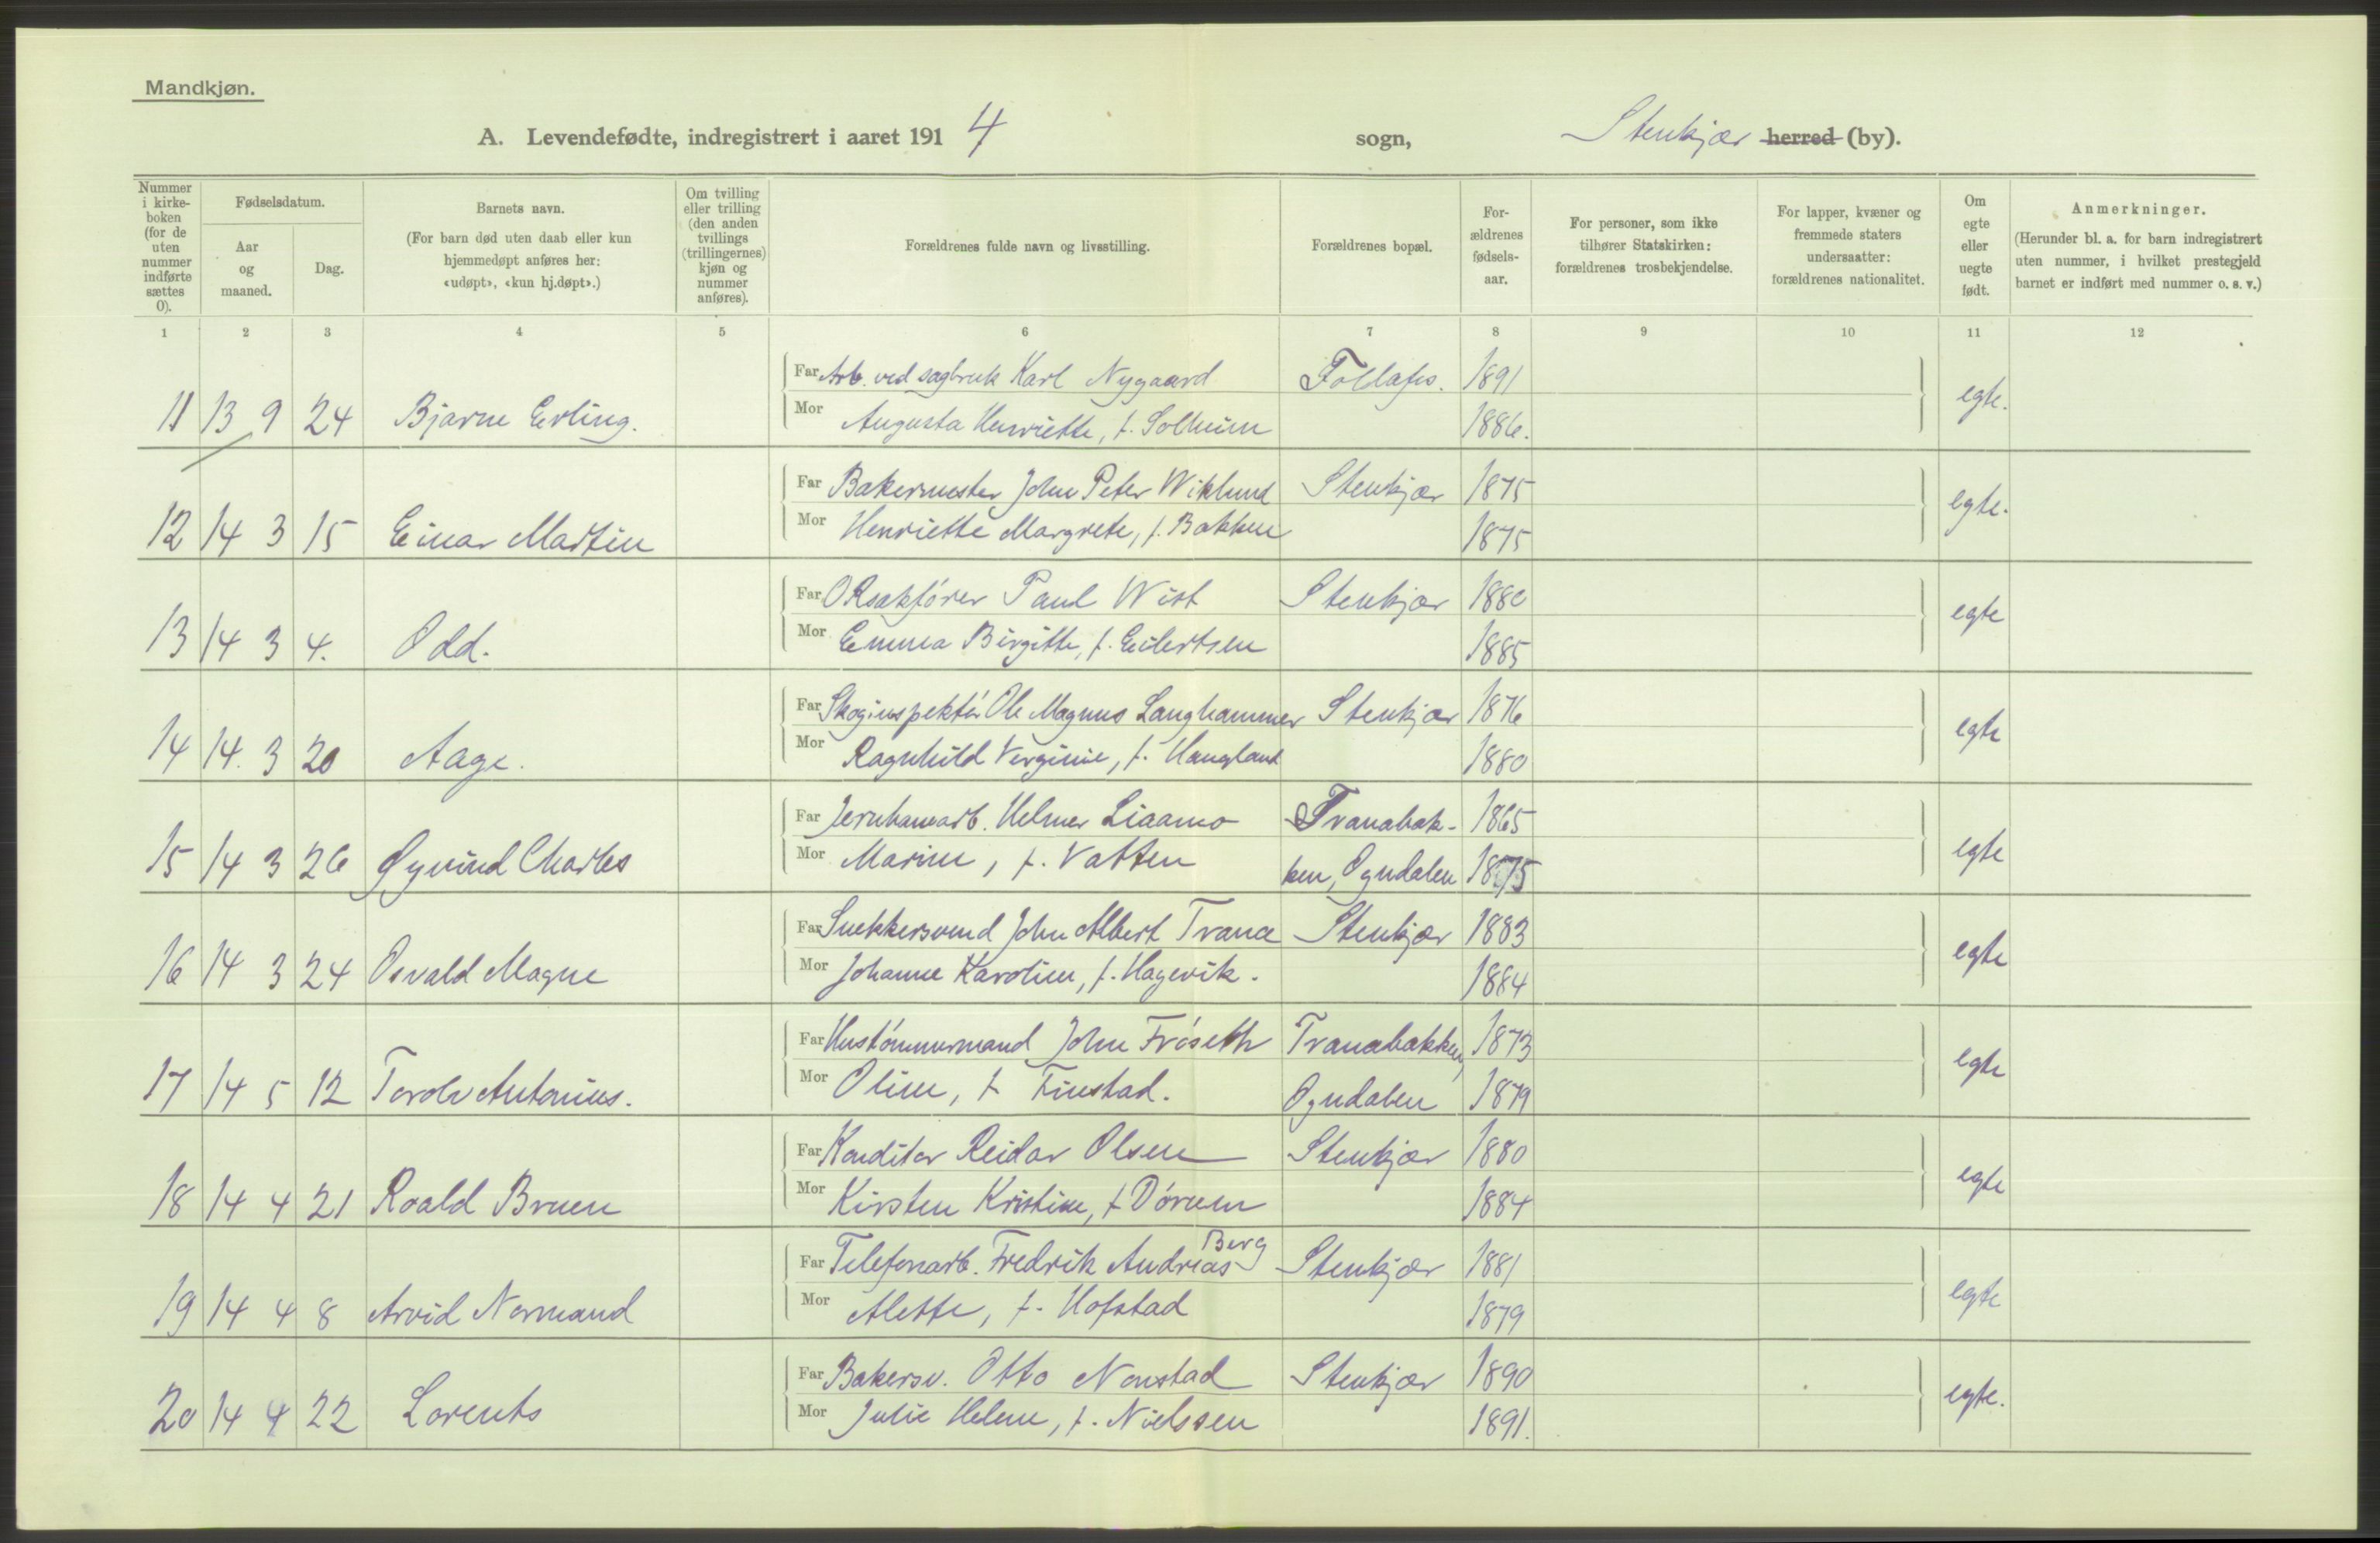 Mandkjøn.
A. Levendefødte, indregistrert i aaret 1914 sogn, Stenkjær herred (by).
Nummer i kirkeboken (for de uten nummer indførte sættes 0).
Fødselsdatum.
Aar og maaned.
Dag.
Barnets navn.
(For barn død uten daab eller kun hjemmedøpt anføres her: «udøpt», «kun hj.døpt».)
Om tvilling eller trilling (den anden tvillings (trillingernes) kjøn og nummer anføres).
Forældrenes fulde navn og livsstilling.
Forældrenes bopæl.
For-ældrenes fødsels-aar.
For personer, som ikke tilhører Statskirken: forældrenes trosbekjendelse.
For lapper, kvæner og fremmede staters undersaatter: forældrenes nationalitet.
Om egte eller uegte født.
Anmerkninger.
(Herunder bl. a. for barn indregistrert uten nummer, i hvilket prestegjeld barnet er indført med nummer o. s. v.)
1 2 3 4 5 6 7 8 9 10 11 12
Far Arb. ved sagbruk Karl Nygaard Follafos. 1891
11 13 9 24 Bjarne Erling. egte.
Mor Augusta Henriette, f. Solheim 1886.
Far Bakermester John Peter Wiklund Stenkjær 1875
12 14 3 15 Einar Martin egte.
Mor Henriette Margrete, f. Bakken 1875
Far ORsakfører Paul Wist Stenkjær 1880
13 14 3 4. Odd. egte
Mor Emma Birgitte, f. Eilertsen 1885
Far Skoginspektør Ole Magnus Langhammer Stenkjær 1876
14 14. 3 20 Aage. egte
Mor Ragnhild Verginie, f. Haugland 1880
Far Jernbanearb. Helmer Liaamo Tranabak- 1865
15 14 3 26 Øyvind Charles egte
Mor Marine, f. Vatten ken, Ogndalen 1875
Far Snekkersvend John Albert Trana Stenkjær 1883
16 14 3 24 Osvald Magne egte
Mor Johanne Karoline, f. Hagevik. 1884
Far Hustømmermand John Frøseth Tranabakken, 1873
17 14 5 12 Torolv Antonius. egte
Mor Oline, f. Finstad. Ogndalen 1879
Far Konditor Reidar Olsen Stenkjær 1880
18 14 4 21 Roald Bruen egte
Mor Kirsten Kristine, f Dørum 1884
Far Telefonarb. Fredrik Andreas Berg Stenkjær 1881
19 14 4 8 Arvid Normand egte
Mor Alette, f. Hofstad 1879
Far Bakersv. Otto Nonstad Stenkjær 1890
20 14 4 22 Lorents egte.
Mor Julie Helene, f. Nielssen 1891.